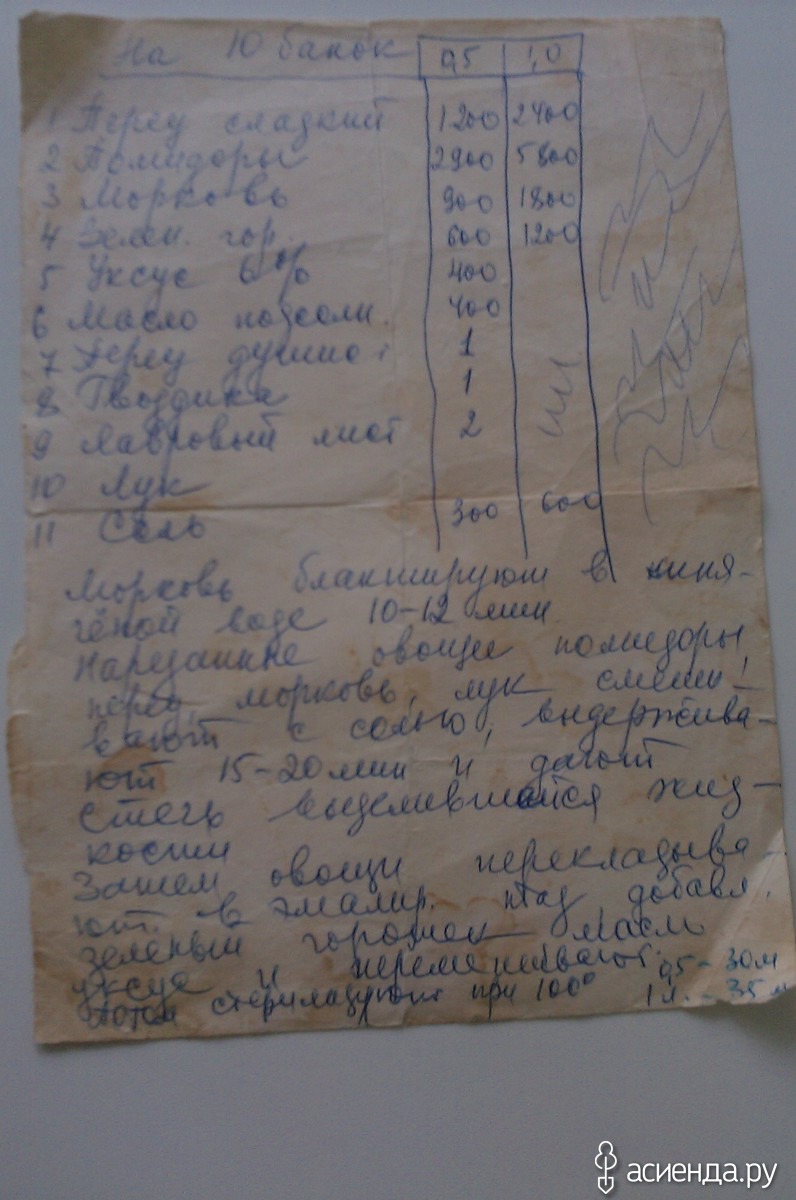 На 10 банок 0,5 1,0
1 Перец сладкий 1200 2400
2 Помидоры 2900 5800
3 Морковь 900 1800
4 Зелен. гор. 600 1200
5 Уксус 6% 400
6 Масло подсолн. 400
7 Перец душист 1
8 Гвоздика 1
9 Лавровый лист 2
10 Лук
11 Соль 300 600
Морковь бланшируют в кипя-
чёной воде 10-12 мин
Нарезанные овощи помидоры,
перец, морковь, лук смеши-
вают с солью, выдержива-
ют 15-20 мин и дают
стечь выделившейся жид-
кости
Затем овощи перекладыва-
ют. в эмалир. таз добавл.
зеленый горошек масло
уксус и перемешивают.
Потом стерилизуют при 100° 0,5 - 30 м
1 л. - 35 м
асиенда.ру